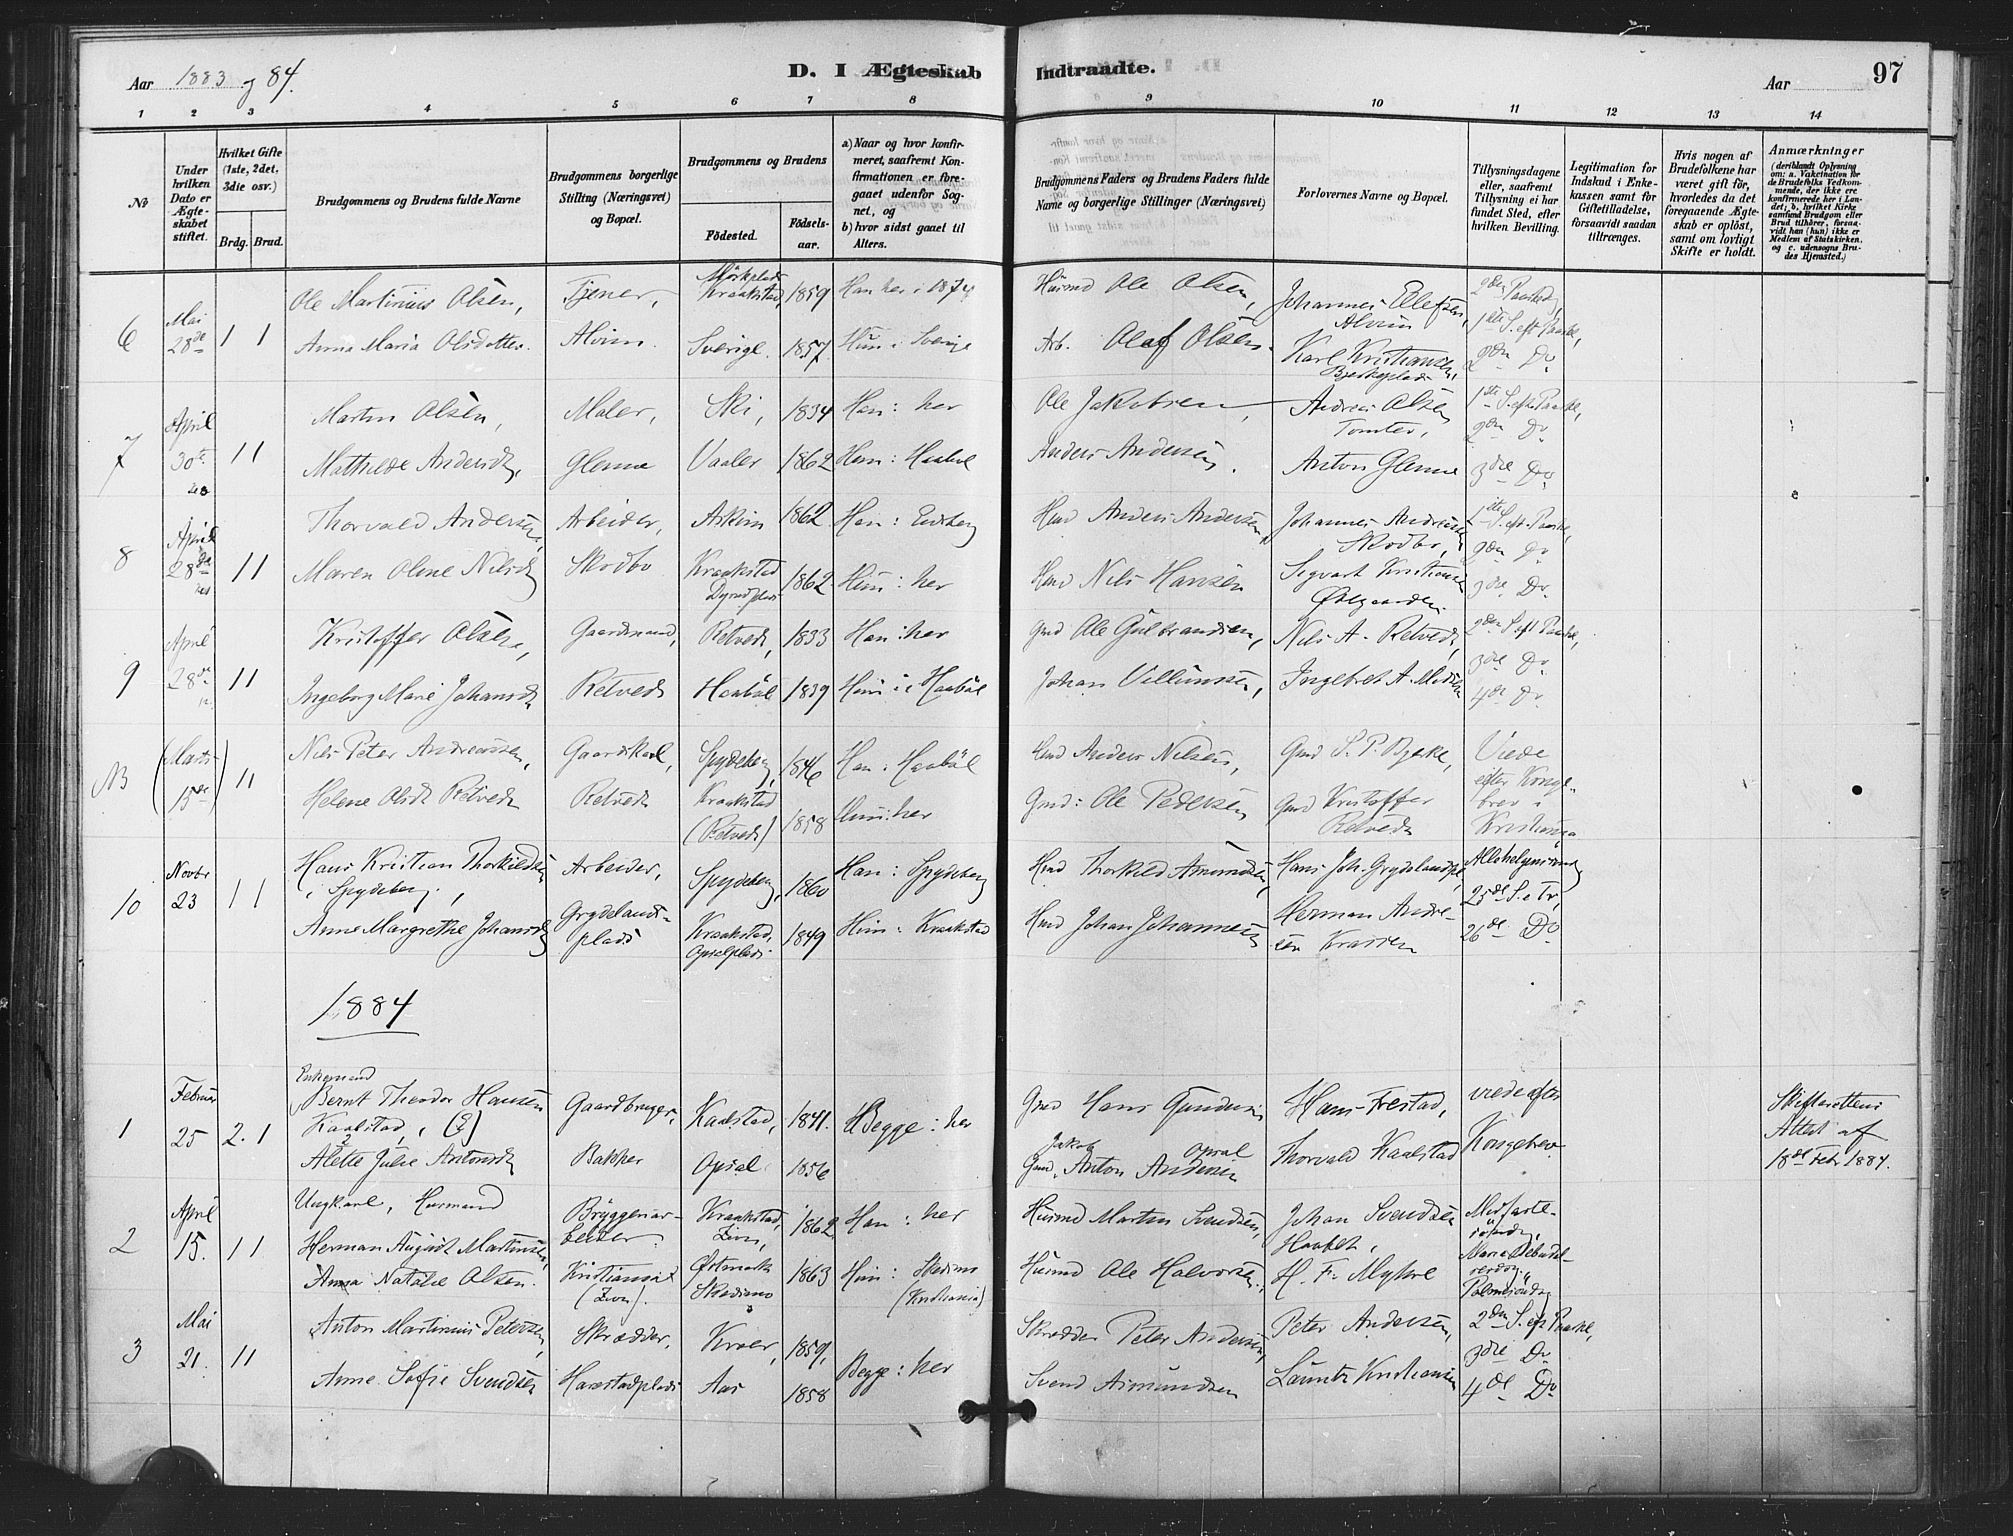 Aar 1883 og 84.
D. I Ægteskab Indtraadte.
Aar
97
1 2 3 4 5 6 7 8 9 10 11 12 13 14
№
Under hvilken Dato er Ægteskabet stiftet.
Hvilket Gifte (1ste, 2det, 3die osv.)
Brdg. Brud.
Brudgommens og Brudens fulde Navne
Brudgommens borgerlige Stilling (Næringsvei) og Bopæl.
Brudgommens og Brudens
Fødested. Fødselsaar.
a) Naar og hvor konfirmeret, saafremt Konfirmationen er foregaaet udenfor Sognet, og
b) hvor sidst gaaet til Alters.
Brudgommens Faders og Brudens Faders fulde Navne og borgerlige Stillinger (Næringsvei)
Forlovernes Navne og Bopæl.
Tillysningsdagene eller, saafremt Tillysning ei har fundet Sted, efter hvilken Bevilling.
Legitimation for Indskud i Enkekassen samt for Giftetilladelse, forsaavidt saadan tiltrænges.
Hvis nogen af Brudefolkene har været gift før, hvorledes da det foregaaende Ægteskab er opløst, samt om lovligt Skifte er holdt.
Anmærkninger
(deriblandt Oplysning om: a. Vakcination for de Brudefolks Vedkommende, der ikke ere konfirmerede her i Landet; b. hvilket Kirkesamfund Brudgom eller Brud tilhører, forsaavidt han (hun) ikke er Medlem af Statskirken, og c. udensogns Brudes Hjemsted.)
6 Mai 28de 1 1
Ole Martinius Olsen, Tjener, Kraakstad, 1859 Han her i 187 Husmd Ole Olsen, Johannes Ellefsen, Alvim 2den Paaskedg,
Anna Maria Olsdatter. Alvim. Sverige. 1857. Hun i Sverige Arb. Olaf Olsen. Karl Kristiansen, 1ste S. eft. Paaske, 2den Do
7 April 30te 1 1
Martin Olsen, Maler, Ski, 1834 Han: her Ole Jakobsen, Andreas Olsen Tomter, 1ste S. eft. Paaske, 2den Do
Mathilde Andersd. Glenne Vaaler 1862 Hun: Haabøl Anders Andersen. Anton Glenne 3die Do
8 April 28de 1 1
Thorvald Andersen, Arbeider, Askim 1862 Han: Eidsberg Hmd Anders Andersen, Johannes Andreassen Skodbo, 1ste S. eft. Paaske, 2den Do
Maren Oline Nilsd. Skodbo Kraakstad 1862 Hun: her Hmd Nils Hansen Sigvart Kristiansen Østgaarden. 3die Do
9 April 28de 1 1
Kristoffer Olsen, Gaardmand, Retvedt, 1833 Han: her Gmd Ole Gulbrandsen, Nils A. Retvedt, 2den S. eft Paaske, 3die Do
Ingeborg Marie Johansd. Retvedt Haabøl 1839 Hun: i Haabøl Johan Villumsen, Ingebret A. 4de Do
NB (Marts 15de) 1 1
Nils Peter Andreassen, Gaardskarl, Spydeberg, 1846 Han: Haabøl Hmd Anders Nilsen, Gmd S. P. Bjerke, Viede efter Kongebrev i Kristiania
Helene Olsdt Retvedt Retvedt Kraakstad (Retvedt) 1858 Hun: her Gmd: Ole Pedersen Gmd Kristoffer Retvedt
10 Novbr 23 1 1
Hans Kristian Thorkildsen i Spydeberg, Arbeider, Spydeberg, 1860 Han: Spydeberg Hmd Thorkild Amundsen, Hans Joh. Grydelandpl, Allehelgensønndg 25de S. e Tr,
Anne Margrethe Johansd. Grydelandsplads Kraakstad, Opsalplads. 1849 Hun: Kraakstad Hmd Johan Johannesen Herman Andresen Krassen 26de Do
1884
1 Februar 25 2. 1
Enkemand Bernt Theodor Hansen Kaalstad, Gaardbruger, Kaalstad, 1841. Begge: her Gmd Hans Gundersen Hans Frestad, viede efter Kongebrev. Skifterettens Attest af 18de Febr 1884.
Alette Julie Antonsd. Bakker Opsal 1856 Gmd. Jakob Anton Andersen Opsal Thorvald Kaalstad
2 April 15. 1 1
Ungkarl, Husmand Herman August Martinsen, Bryggeriarbeider. Kraakstad, 1862 Han: her Husmd Martin Svendsen, Johan Svendsen Haabet, Midfastesøndg, Maria Bebudelsesdag, Palmesøndg
Anna Natalie Olsen. Kristiania Østmark Skedsmo 1863 Hun: Skedsmo (Kristiania) Husmd Ole Halvorsen, H. F. Myhre
3 Mai 21. 1 1
Anton Martinius Petersen, Skrædder, Kroer, 1859, Begge: her Skrædder Peter Andersen, Peter Andersen, 2den S. eft Paaske, 3die Do
Anne Sofie Svendsen Harestadplads Aas 1858 Svend Asmundsen Lauritz Kristiansen 4de Do